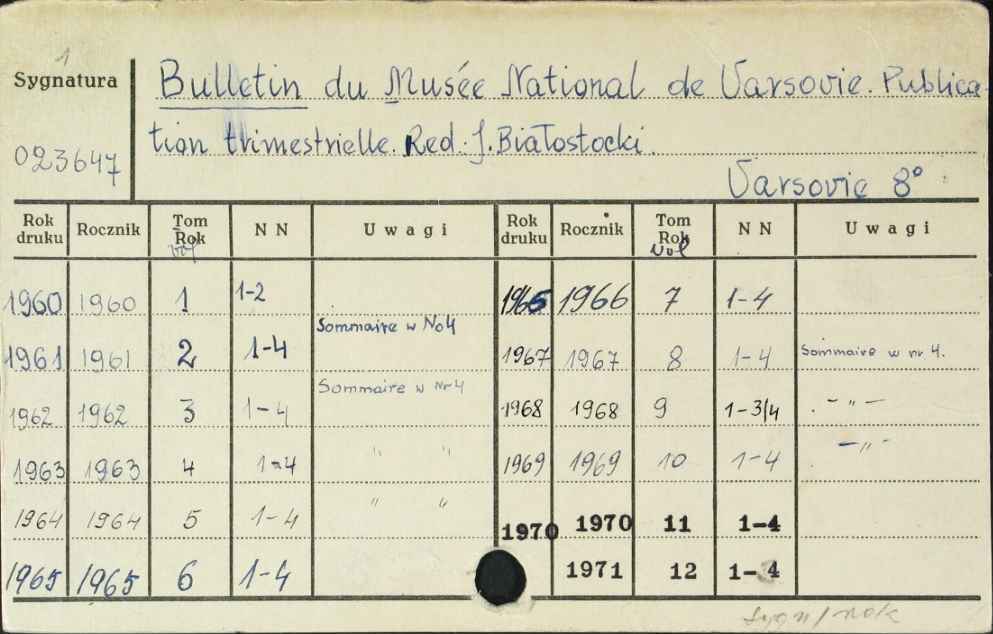 1
Sygnatura
023647
Bulletin du Musée National de Varsovie. Publica-
tion trimestrielle. Red. J. Białostocki.
Varsovie 8°
Rok druku Rocznik Tom Rok vol N N Uwagi Rok druku Rocznik Tom Rok vol N N Uwagi
1960 1960 1 1-2 1965 1966 7 1-4
Sommaire w No4
1961 1961 2 1-4 1967 1967 8 1-4 Sommaire w nr 4.
Sommaire w Nr 4
1962 1962 3 1-4 1968 1968 9 1-3/4 . - " -
1963 1963 4 1-4 " " 1969 1969 10 1-4 . - " -
1964 1964 5 1-4 " " 1970 1970 11 1-4
1965 1965 6 1-4 1971 12 1-4
sygn/rok